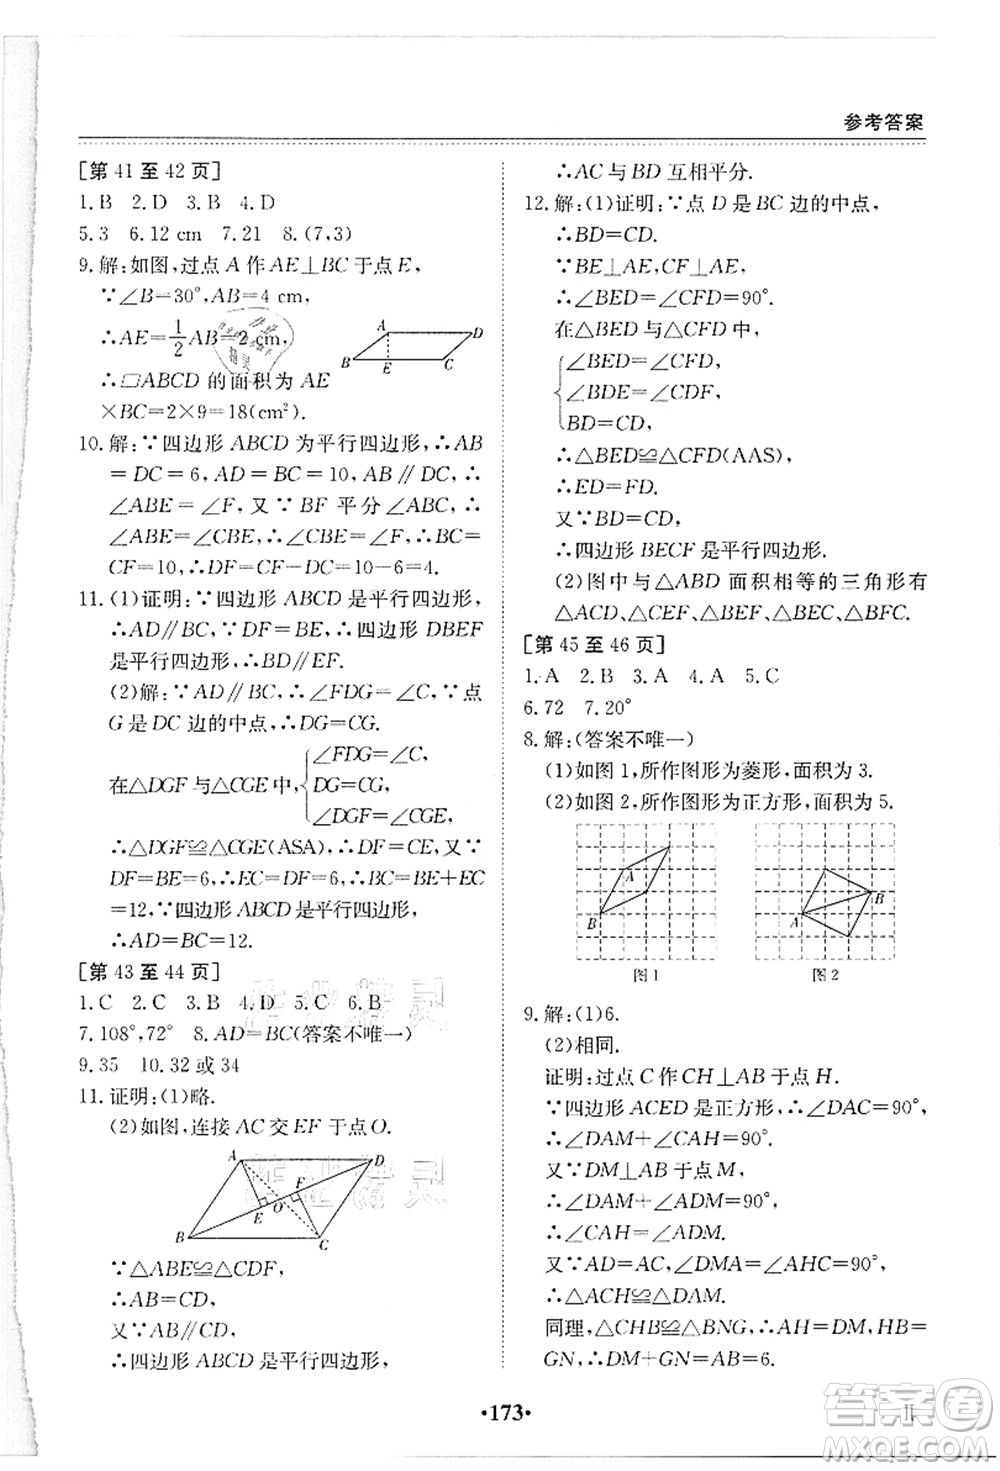 参考答案
[第 41 至 42 页]
1. B 2. D 3. B 4. D
5. 3 6. 12 cm 7. 21 8. (7,3)
9. 解:如图,过点 A 作 AE⊥BC 于点 E,
∵∠B=30°,AB=4 cm,
∴AE=1/2 AB=2 cm,
A D B E C
∴▱ABCD 的面积为 AE
×BC=2×9=18(cm²).
10. 解:∵四边形 ABCD 为平行四边形,∴AB
=DC=6,AD=BC=10,AB∥DC,∴
∠ABE=∠F,又∵BF 平分∠ABC,∴
∠ABE=∠CBE,∴∠CBE=∠F,∴BC=
CF=10,∴DF=CF-DC=10-6=4.
11. (1)证明:∵四边形 ABCD 是平行四边形,
∴AD∥BC,∵DF=BE,∴四边形 DBEF
是平行四边形,∴BD∥EF.
(2)解:∵AD∥BC,∴∠FDG=∠C,∵点
G 是 DC 边的中点,∴DG=CG.
在△DGF 与△CGE 中,
∠FDG=∠C,
DG=CG,
∠DGF=∠CGE,
∴△DGF≌△CGE(ASA),∴DF=CE,又∵
DF=BE=6,∴EC=6,∴BC=BE+EC
=12,∵四边形 ABCD 是平行四边形,
∴AD=BC=12.
[第 43 至 44 页]
1. C 2. C 3. B 4. D 5. C 6. B
7. 108°,72° 8. AD=BC(答案不唯一)
9. 35 10. 32 或 34
11. 证明:(1)略.
(2)如图,连接 AC 交 EF 于点 O.
A D F E O B C
∵△ABE≌△CDF,
∴AB=CD,
又∵AB∥CD,
∴四边形 ABCD 是平行四边形,
∴AC 与 BD 互相平分.
12. 解:(1)证明:∵点 D 是 BC 边的中点,
∴BD=CD.
∵BE⊥AE,CF⊥AE,
∴∠BED=∠CFD=90°.
在△BED 与△CFD 中,
∠BED=∠CFD,
∠BDE=∠CDF,
BD=CD,
∴△BED≌△CFD(AAS),
∴ED=FD.
又∵BD=CD,
∴四边形 BECF 是平行四边形.
(2)图中与△ABD 面积相等的三角形有
△ACD、△CEF、△BEF、△BEC、△BFC.
[第 45 至 46 页]
1. A 2. B 3. A 4. A 5. C
6. 72 7. 20°
8. 解:(答案不唯一)
(1)如图 1,所作图形为菱形,面积为 3.
(2)如图 2,所作图形为正方形,面积为 5.
A B A B
图 1 图 2
9. 解:(1)6.
(2)相同.
证明:过点 C 作 CH⊥AB 于点 H.
∵四边形 ACED 是正方形,∴∠DAC=90°,
∴∠DAM+∠CAH=90°.
又∵DM⊥AB 于点 M,
∴∠DAM+∠ADM=90°,
∴∠CAH=∠ADM.
又∵AD=AC,∠DMA=∠AHC=90°,
∴△ACH≌△DAM.
同理,△CHB≌△BNG,∴AH=DM,HB=
GN,∴DM+GN=AB=6.
·173·
答案圈
MXQE.COM